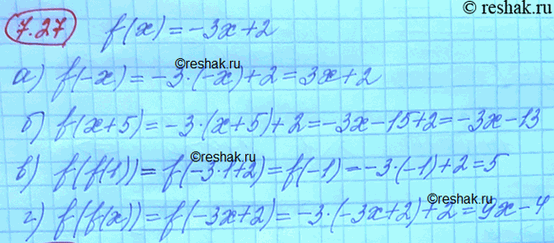 © reshak.ru
7.27 f(x) = -3x+2
а) f(-x) = -3·(-x)+2 = 3x+2
©reshak.ru
б) f(x+5) = -3·(x+5)+2 = -3x-15+2 = -3x-13
в) f(f(1)) = f(-3·1+2) = f(-1) = -3·(-1)+2 = 5
©reshak.ru
г) f(f(x)) = f(-3x+2) = -3·(-3x+2)+2 = 9x-4
©reshak.ru